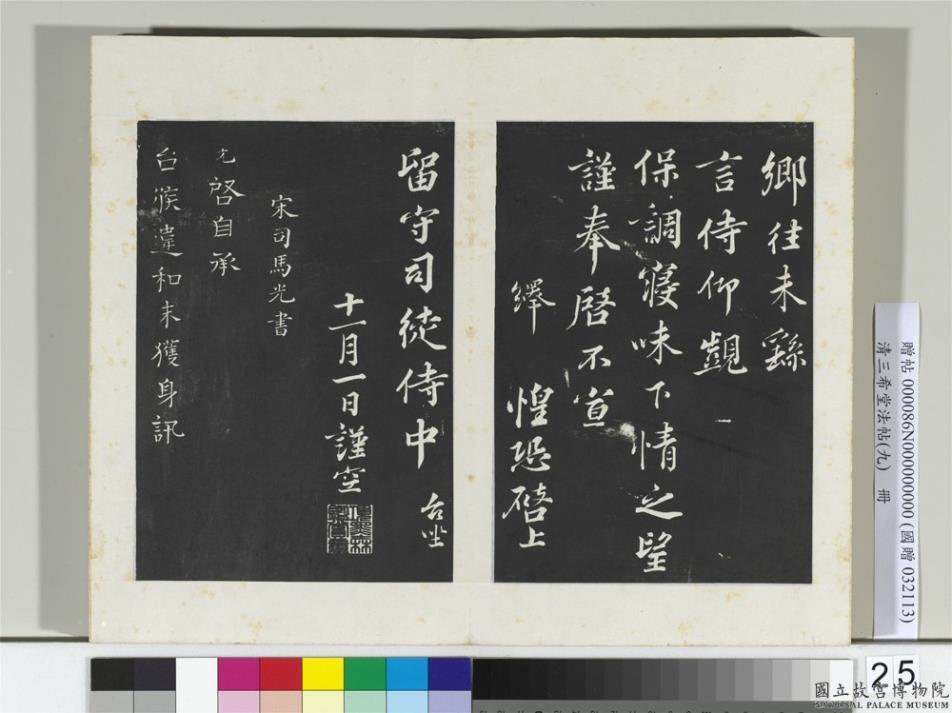 鄉往未繇
言侍仰覬
保調寢味下情之望
謹奉啓不宣
繹 惶恐啓上
留守司徒侍中 台坐
十一月一日謹空
宋司馬光書
光啓自承
台候違和未獲身訊
贈帖 000086N000000000 (國贈 032113)
清三希堂法帖(九) 冊
25
國立故宮博物院
NATIONAL PALACE MUSEUM